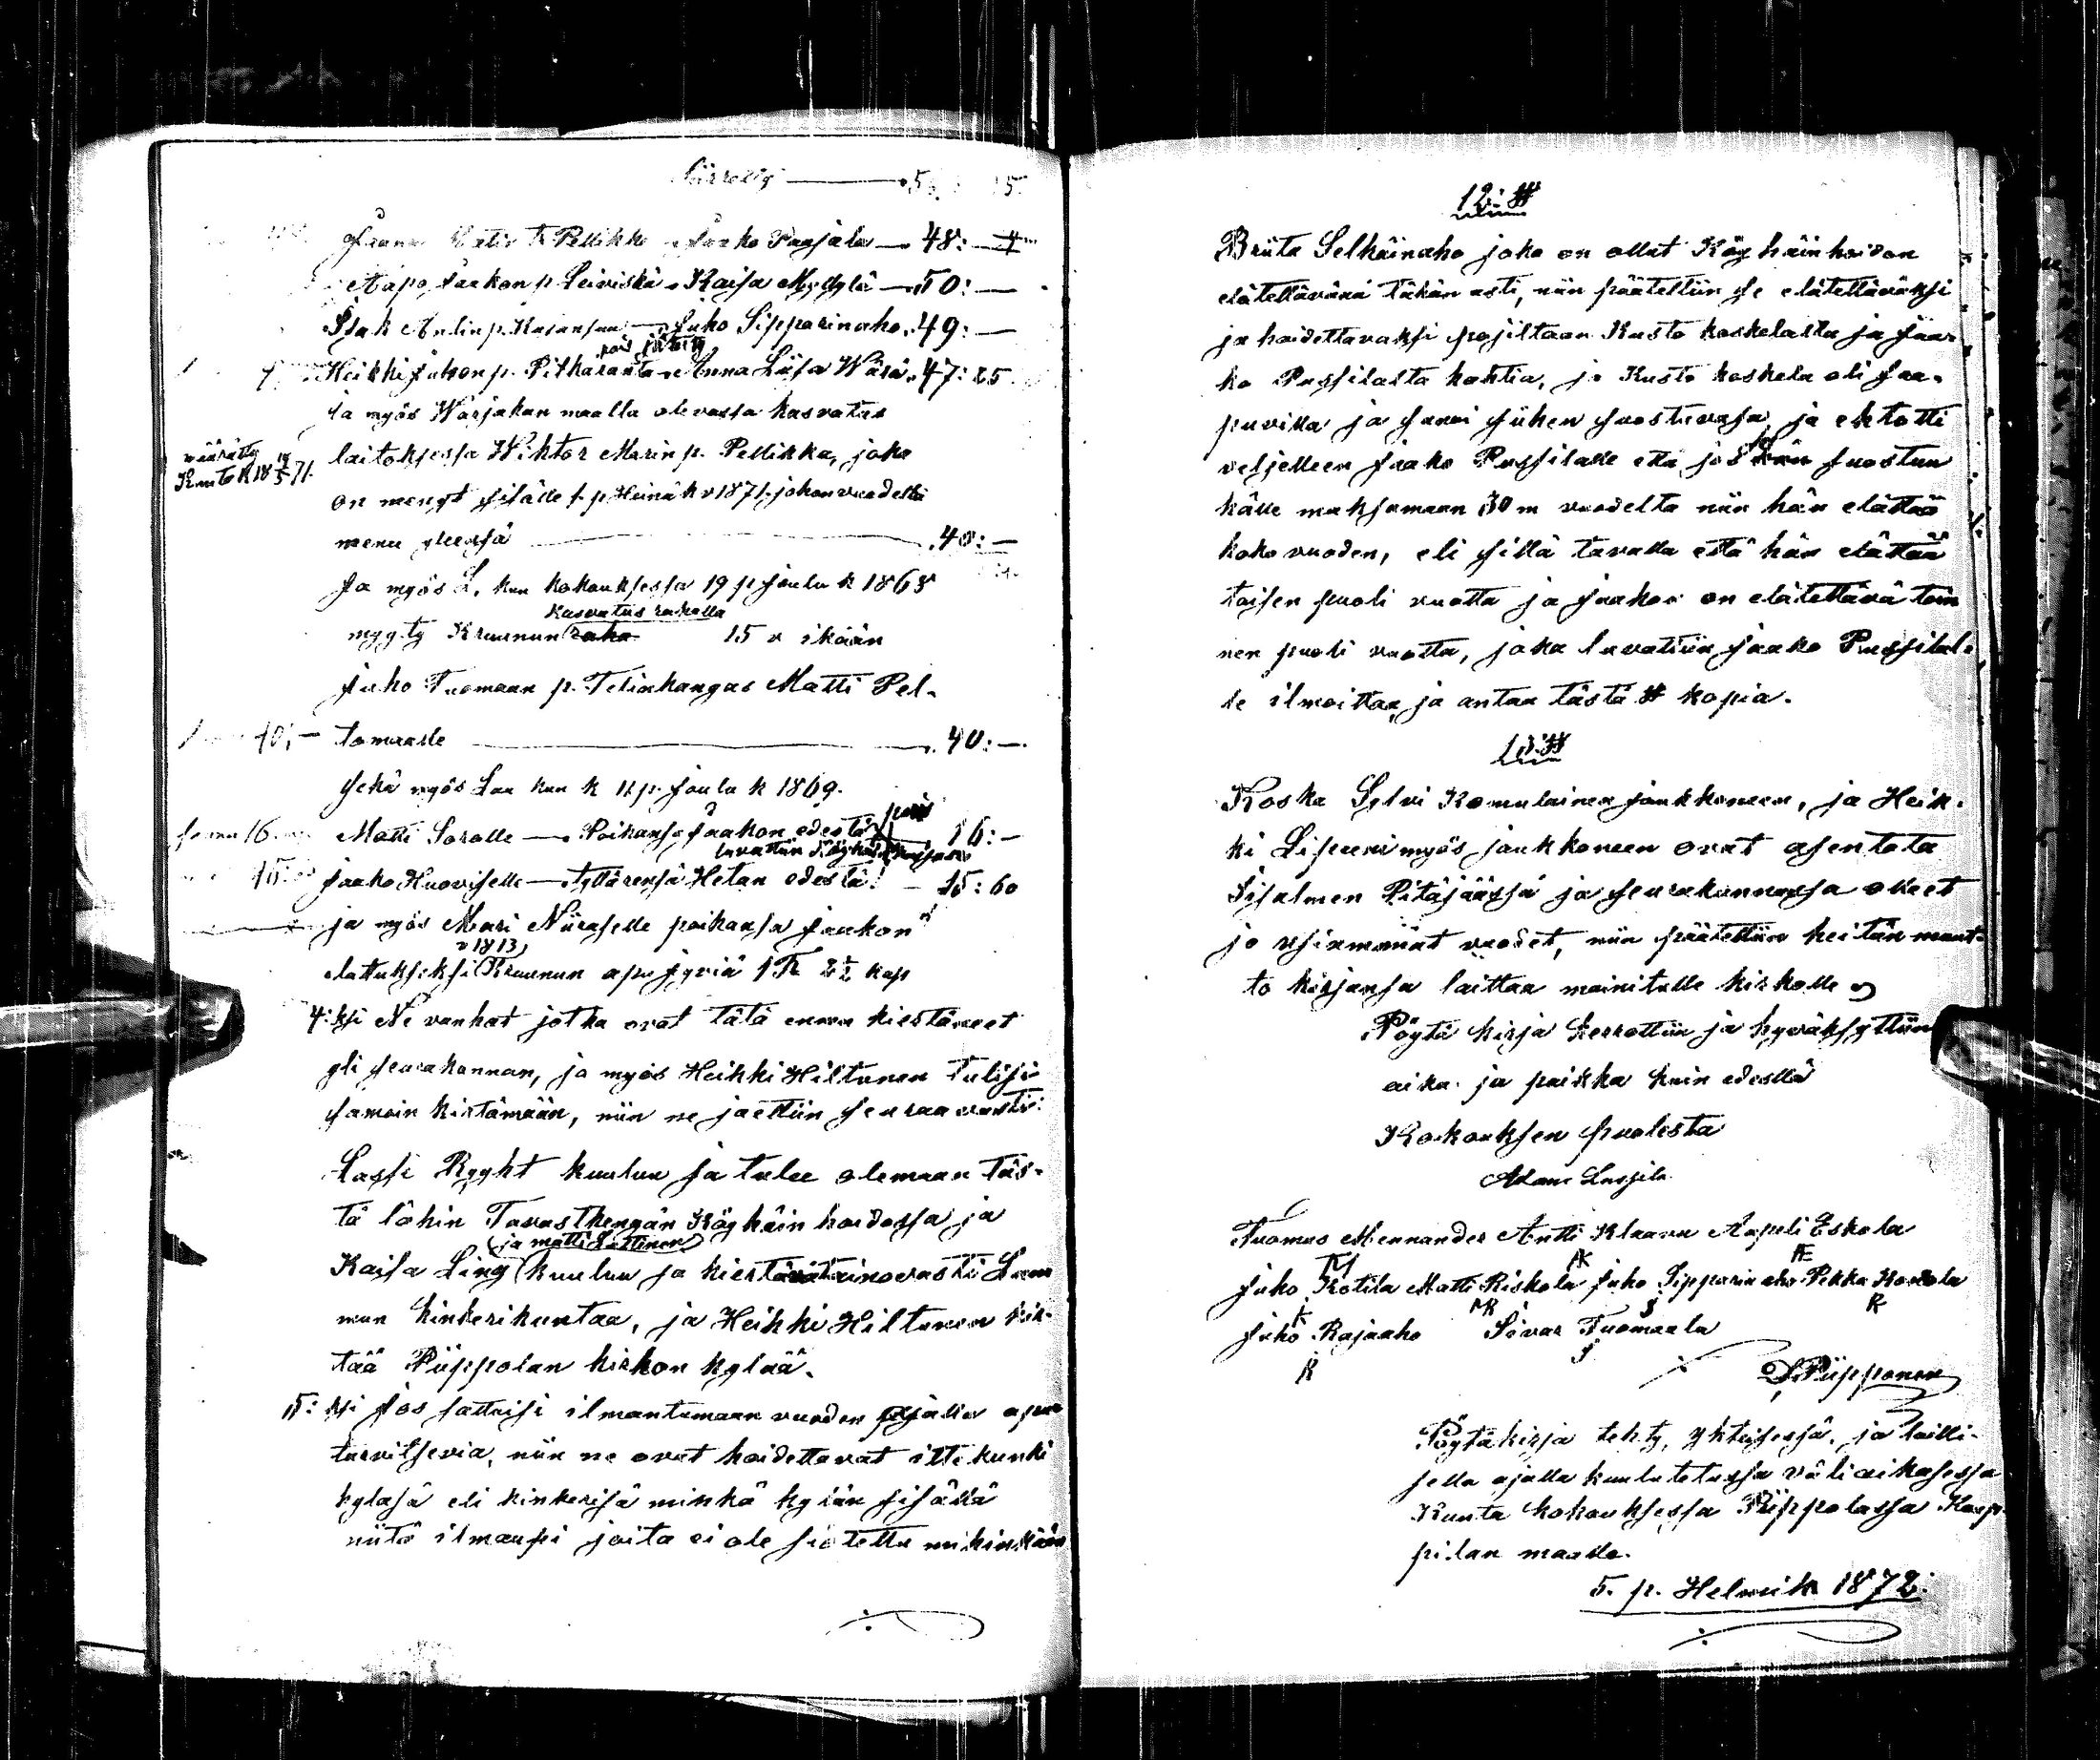 Siirretty
Jaako Vaarala 48:
Aapo Jaakon p. Leiviskä Kaisa Myllylä 50: —
Isak Antin p. Kajansuu — Juho Sipparinaho. 49: —
pois jätetty
Heikki Juhon p. Pitkäranta Anna Liisa Wärä. 47: 25
ja myös Warjakan maalla olevassa kasvatus
määrätty
laitoksessa Wihtor Marin p. Pellikka, joka
on mengt sisälle 1. p Heinäk v 1871. johon vuodelta
menee yleensä — 40: —
Ja myös L. kun kokouksessa 19 p Joulu k 1868
kasvatus rahalla
myyty Kruunun raha 15 v ikään
Juho Tuomaan p. Telinkangas Matti Pel-
10; — tomaalle — 40: —
Sekä myös Lau kun k 11 p. Joulu k 1869.
pois
Matti Soralle — Poikansa Jaakon edestä 16: —
Jaako Huoviselle — tyttärensä Hetan edestä 15: 60
ja myös Mari Niiraselle poikansa Jaakon
v 1813
elatukseksi Kruunun apu jyviä 1 T 2½ kap
4: ksi Ne vanhat jotka ovat tätä ennen kiestäneet
yli seurakunnan, ja myös Heikki Hiltunen tulisi
samoin kiertämään, niin ne jaettiin seuraavasti:
Lassi Ryyht kuuluu ja tulee olemaan täs-
tä lähin Tavasthengän Köyhäin hoidossa ja
(ja matti Lattinen)
Kaisa Ling kuuluu ja kiertävät ainovasti Lam
mun kinkerikuntaa, ja Heikki Hiltunen kir-
tää Piippolan kirkon kylää.
5: ksi Jos sattuisi ilmantumaan vuoden ajalla apua
tarvitsevia, niin ne ovat hoidettavat itte kunki
kyläsä eli kinkerisä minkä kylän sisällä
niitä ilmaupi joita ei ole siotettu mihinkään
12: §
Briita Selkäinaho joka on ollut Köyhäinhoidon
elätettävänä tähän asti, niin päätettiin se elätettäväksi
ja hoidettavaksi pojiltaan Kusto koskelalta ja Jaa-
ko Pussilalta kohtia, ja Kusto koskela oli saa-
puvilla ja sanoi siihen suostuvasa, ja ehtotti
veljelleen Jaako Pussilalle että jos se suostuu
hälle maksamaan 30 m vuodelta niin hän elättää
koko vuoden, eli sillä tavalla että hän elättää
toisen puoli vuotta ja Jaakon on elätettävä toin
nen puoli vuotta, joka luvattiin Jaako Pussilal-
le ilmoittaa, ja antaa tästä § kopia.
13: §
Koska Sylvi Komulainen joukkoneen, ja Heik-
ki Lisunen myös joukkoneen ovat asentota
Iisalmen Pitäjäässä ja seurakunnassa olleet
jo usiammat vuodet, niin päätettiin heitän muut-
to kirjansa laittaa mainitulle kirkolle
Pöytä kirja kerrottiin ja hyväksyttiin
aika ja paikka kuin edellä
Kokouksen puolesta
Adam Lassila
Tuomas Mennander Antti Klaavu Aapeli Eskola
TM AK AE
Juho Kotila Matti Riskola Juho Sipparinaho Pekka Koskola
K MR S K
Juho Rajaaho Sivar Tuomaala
R S
D. Piipponen
Pöytäkirja tehty, yhteisessä, ja lailli-
sella ajalla kuulutetussa väliaikasessa
Kunta kokouksessa Piippolassa Kaup-
pilan maalla.
5. p. Helmik 1872.